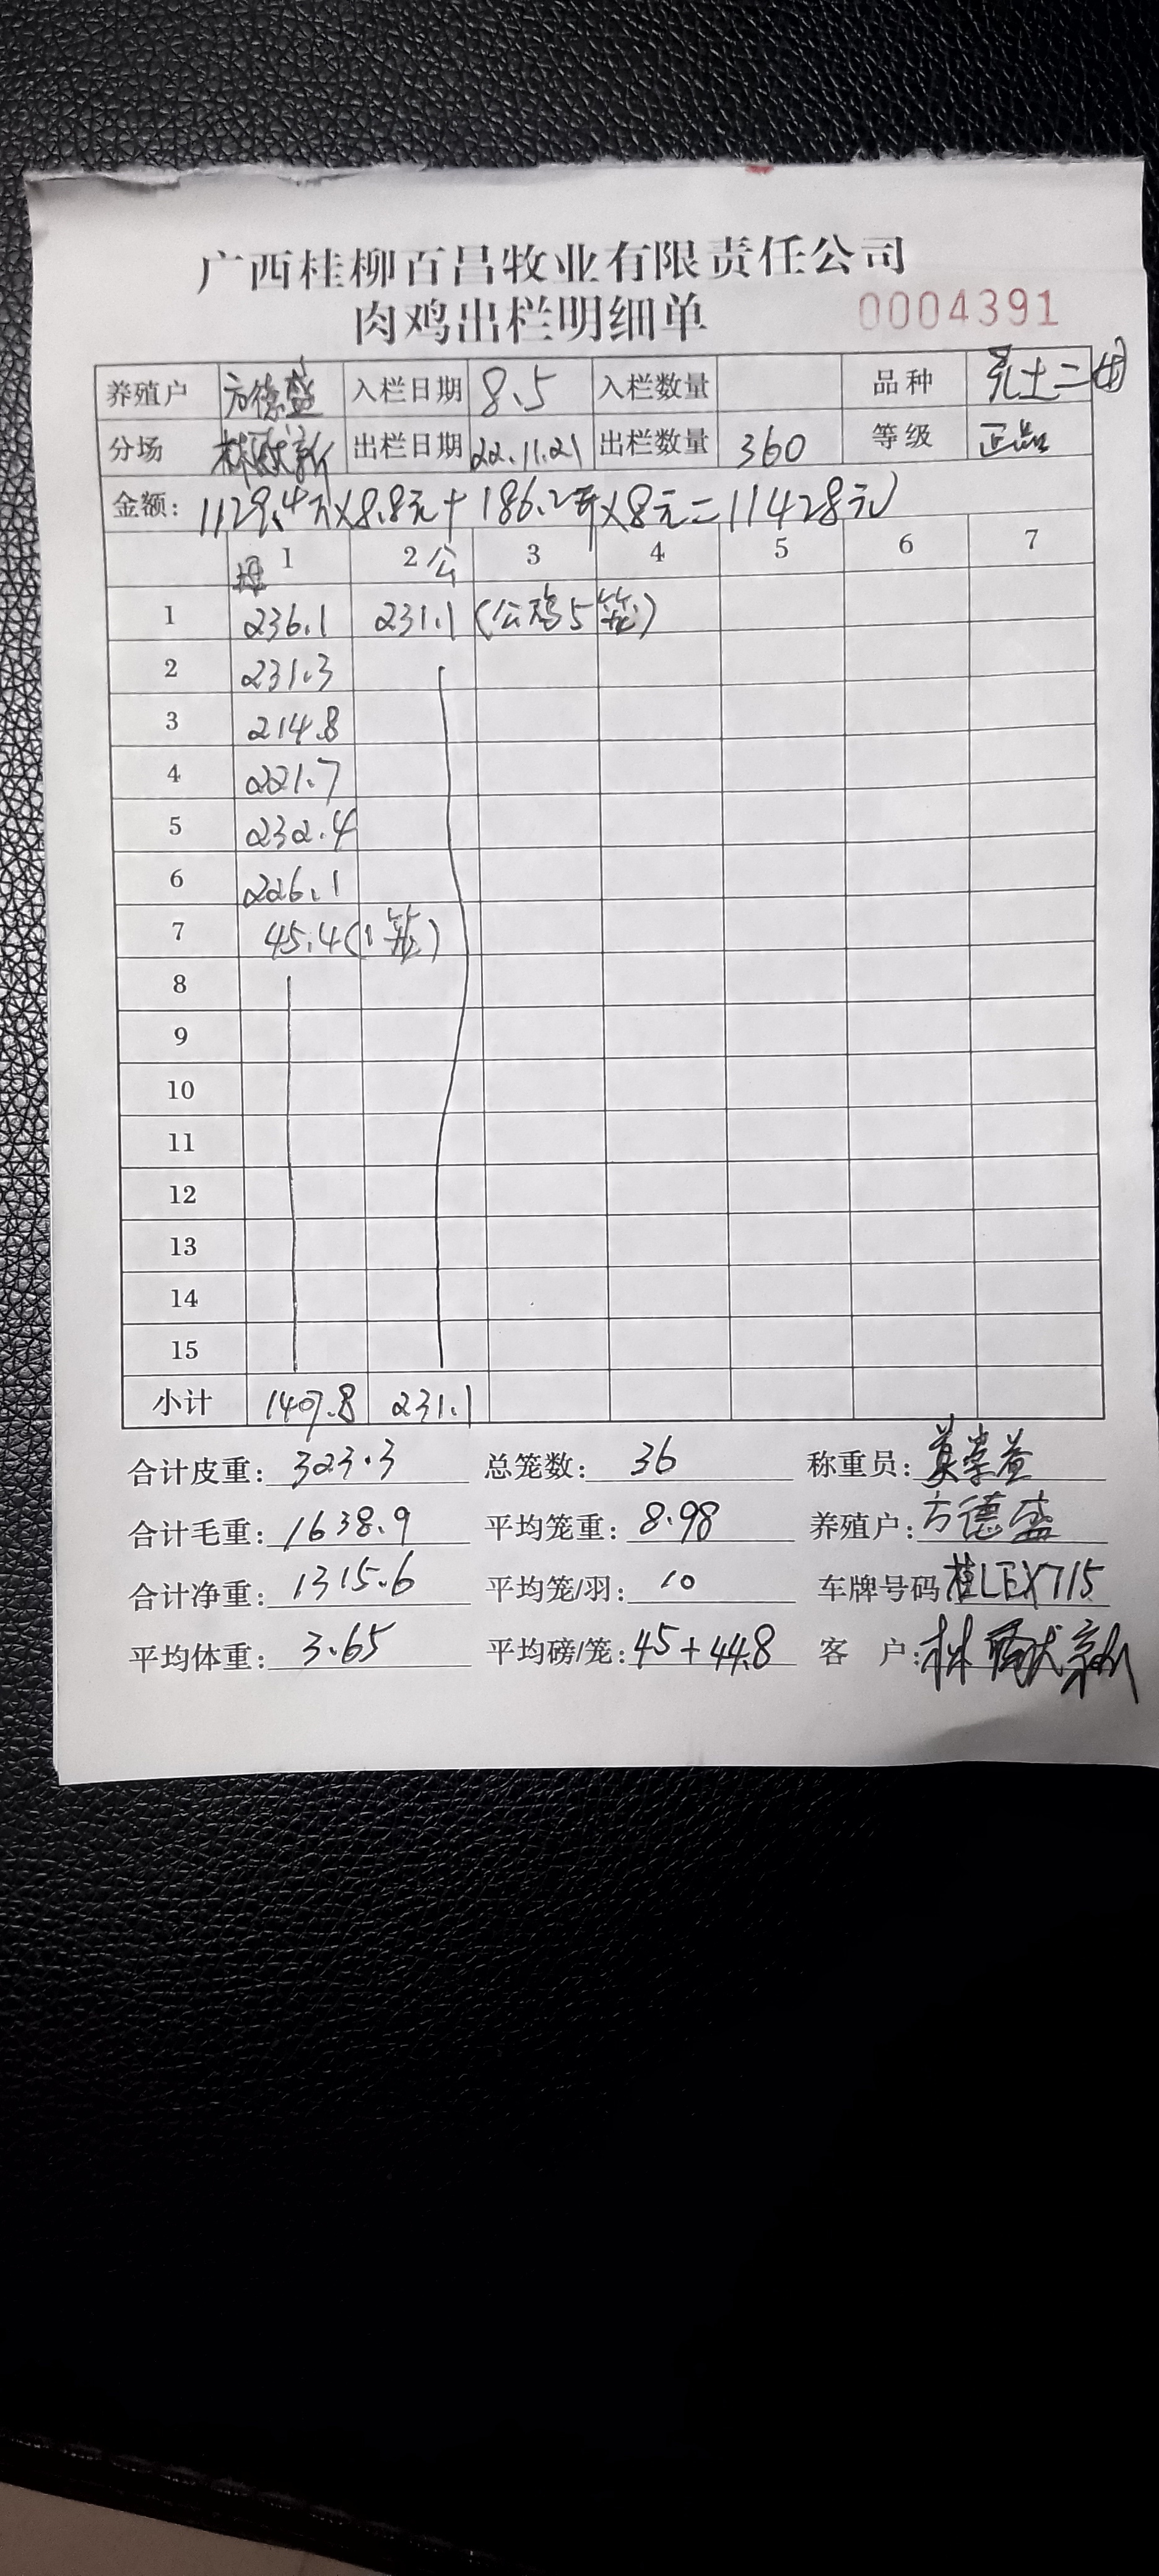 广西桂柳百昌牧业有限责任公司
肉鸡出栏明细单 0004391
养殖户 方德盛 入栏日期 8.5 入栏数量 品种 土二
分场 出栏日期 22.11.21 出栏数量 360 等级 正品
金额: 1129.4斤×8.8元+186.2斤×8元=11428元
母 1 2 公 3 4 5 6 7
1 236.1 231.1 (公鸡5笼)
2 231.3
3 214.8
4 221.7
5 232.4
6 226.1
7 45.4(1笼)
8
9
10
11
12
13
14
15
小计 1407.8 231.1
合计皮重: 323.3 总笼数: 36 称重员:
合计毛重: 1638.9 平均笼重: 8.98 养殖户: 方德盛
合计净重: 1315.6 平均笼/羽: 10 车牌号码: 桂LEX715
平均体重: 3.65 平均磅/笼: 45+44.8 客 户: